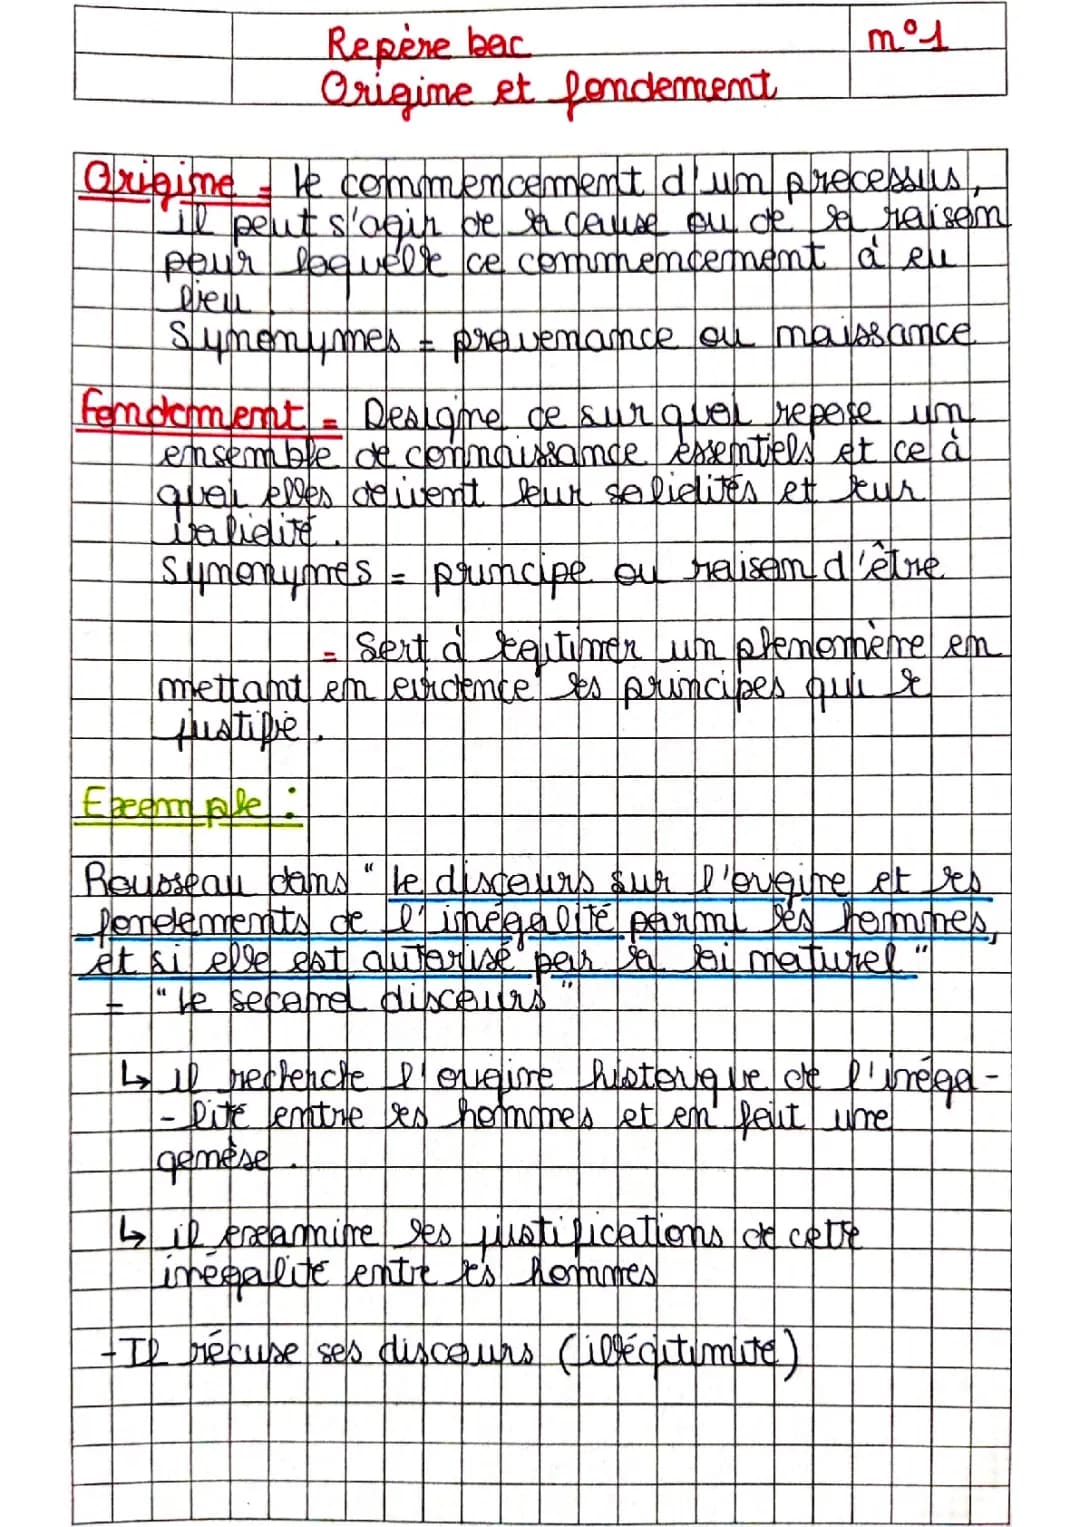 Repère bac
n°1
Origine et fondement
Origine = le commencement d'un processus,
il peut s'agir de la cause ou de la raison
pour laquelle ce commencement à eu
lieu.
Synonymes = provenance ou naissance
Fondement = Designe ce sur quoi repose un
ensemble de connaissance essentiels et ce à
quoi elles doivent leur solidités et leur
validité.
Synonymes = principe ou raison d'être
= Sert à légitimer un phenomène en
mettant en evidence les principes qui le
justifie.
Exemple :
Rousseau dans "le discours sur l'origine et les
fondements de l'inégalité parmi les hommes,
et si elle est autorisé par la loi naturel"
- "le second discours"
↳ il recherche l'origine historique de l'inéga-
-lité entre les hommes et en fait une
genèse.
↳ il examine les justifications de cette
inégalité entre les hommes
-Il récuse ses discours (illégitimité)